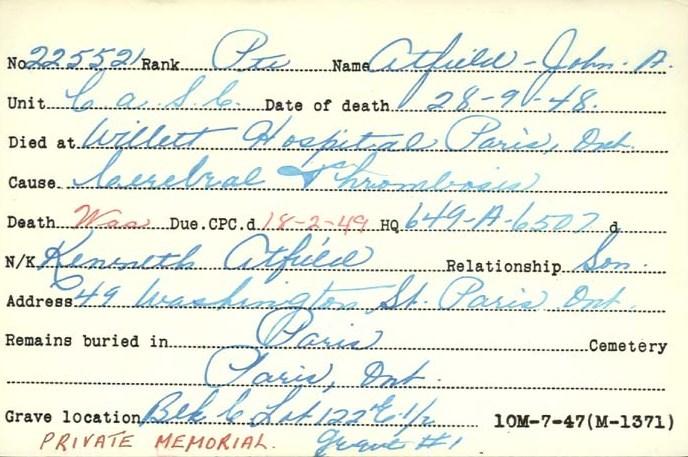 No. 225521 Rank Pte Name Atfield - John. A.
Unit C. a. S. C. Date of death 28-9-48.
Died at Willett Hospital Paris, Ont.
Cause Cerebral Thrombosis
Death Was Due.CPC.d 18-2-49 HQ 649-A-6507 d
N/K Kenneth Atfield Relationship Son.
Address 49 Washington St. Paris Ont.
Remains buried in Paris Cemetery
Paris, Ont.
Grave location Blk C Lot 122 E 1/2 10M-7-47(M-1371)
PRIVATE MEMORIAL. grave #1